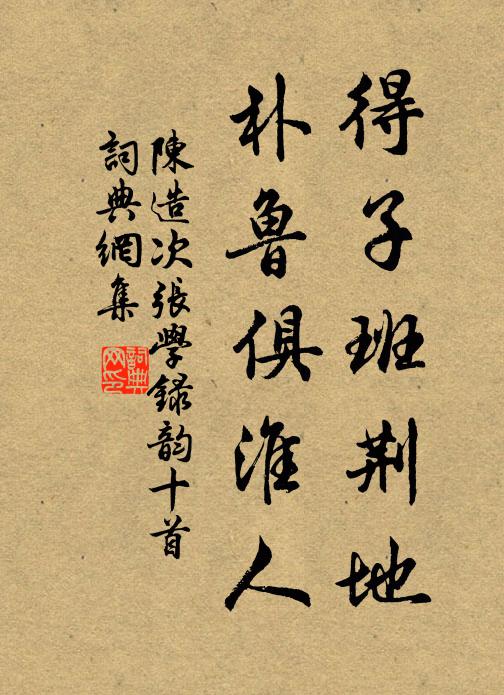 得子班荆地
朴魯俱淮人
陳造次張學録韵十首
詞典網集
詞典網印